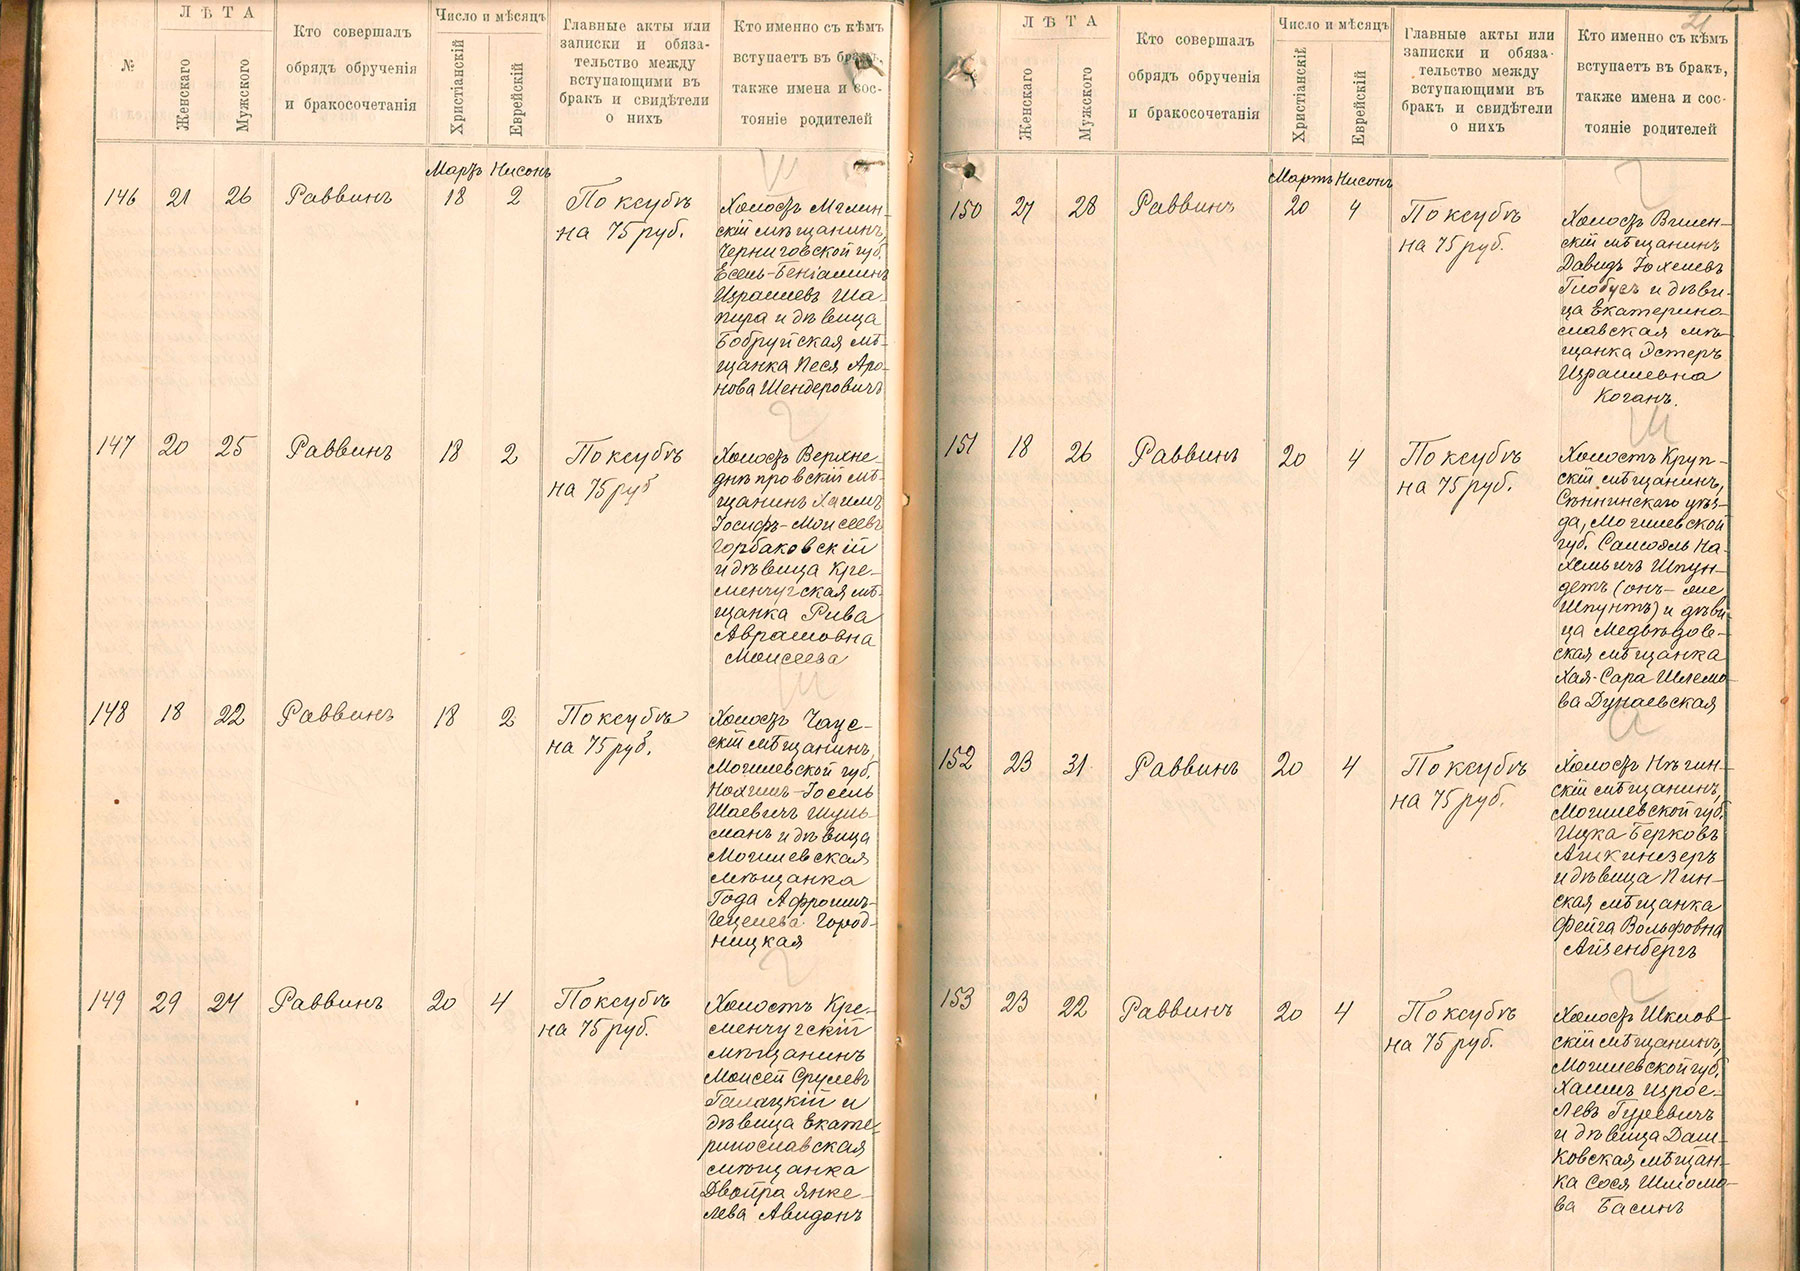 №
ЛѢТА
Женскаго
Мужского
Кто совершалъ
обрядъ обрученія
и бракосочетанія
Число и мѣсяцъ
Христіанскій
Еврейскій
Главные акты или
записки и обяза-
тельство между
вступающими въ
бракъ и свидѣтели
о нихъ
Кто именно съ кѣмъ
вступаетъ въ бракъ,
также имена и сос-
тояніе родителей
Мартъ Нисонъ
146 21 26 Раввинъ 18 2
По ксубѣ
на 75 руб.
Холостъ Мглин-
скій мѣщанинъ,
Черниговской губ.
Есель-Беніаминъ
Израилевъ Ша-
пира и дѣвица
Бобруйская мѣ-
щанка Песя Аро-
нова Шендеровичъ
147 20 25 Раввинъ 18 2
По ксубѣ
на 75 руб
Холостъ Верхне-
днѣпровскій мѣ-
щанинъ Хаимъ
Іосифъ-Моисеевъ
Горбаковскій
и дѣвица Кре-
менчугская мѣ-
щанка Рива
Абрамовна
Моисеева
148 18 22 Раввинъ 18 2
По ксубѣ
на 75 руб.
Холостъ Чаус-
скій мѣщанинъ,
Могилевской губ.
Нохимъ-Іосель
Шаевичъ Шуль-
манъ и дѣвица
Могилевская
мѣщанка
Года Афроимъ-
Гецелева Город-
ницкая
149 29 27 Раввинъ 20 4
По ксубѣ
на 75 руб.
Холостъ Кре-
менчугскій
мѣщанинъ
Моисей Срулевъ
Галацкій и
дѣвица Екате-
ринославская
мѣщанка
Двойра Янке-
лева Авидонъ
21
ЛѢТА
Женскаго
Мужского
Кто совершалъ
обрядъ обрученія
и бракосочетанія
Число и мѣсяцъ
Христіанскій
Еврейскій
Главные акты или
записки и обяза-
тельство между
вступающими въ
бракъ и свидѣтели
о нихъ
Кто именно съ кѣмъ
вступаетъ въ бракъ,
также имена и сос-
тояніе родителей
Мартъ Нисонъ
150 27 28 Раввинъ 20 4
По ксубѣ
на 75 руб.
Холостъ Вилен-
скій мѣщанинъ
Давидъ Іохелевъ
Глобусъ и дѣви-
ца Екатерино-
славская мѣ-
щанка Эстеръ
Израилевна
Коганъ.
151 18 26 Раввинъ 20 4
По ксубѣ
на 75 руб.
Холостъ Круп-
скій мѣщанинъ,
Сѣннинскаго уѣз-
да, Могилевской
губ. Самоэль На-
хемьичъ Шпун-
детъ (онъ-же
Шпунтъ) и дѣви-
ца Медвѣдов-
ская мѣщанка
Хая-Сара Шлемо-
ва Дунаевская
152 23 31 Раввинъ 20 4
По ксубѣ
на 75 руб.
Холостъ Нѣжин-
скій мѣщанинъ,
Могилевской губ.
Ицка Берковъ
Ашкинезеръ
и дѣвица Пин-
ская мѣщанка
Фейга Вольфовна
Айзенбергъ
153 23 22 Раввинъ 20 4
По ксубѣ
на 75 руб.
Холостъ Шклов-
скій мѣщанинъ,
Могилевской губ.
Хаимъ Израе-
левъ Гуревичъ
и дѣвица Даш-
ковская мѣщан-
ка Сося Шломо-
ва Басинъ